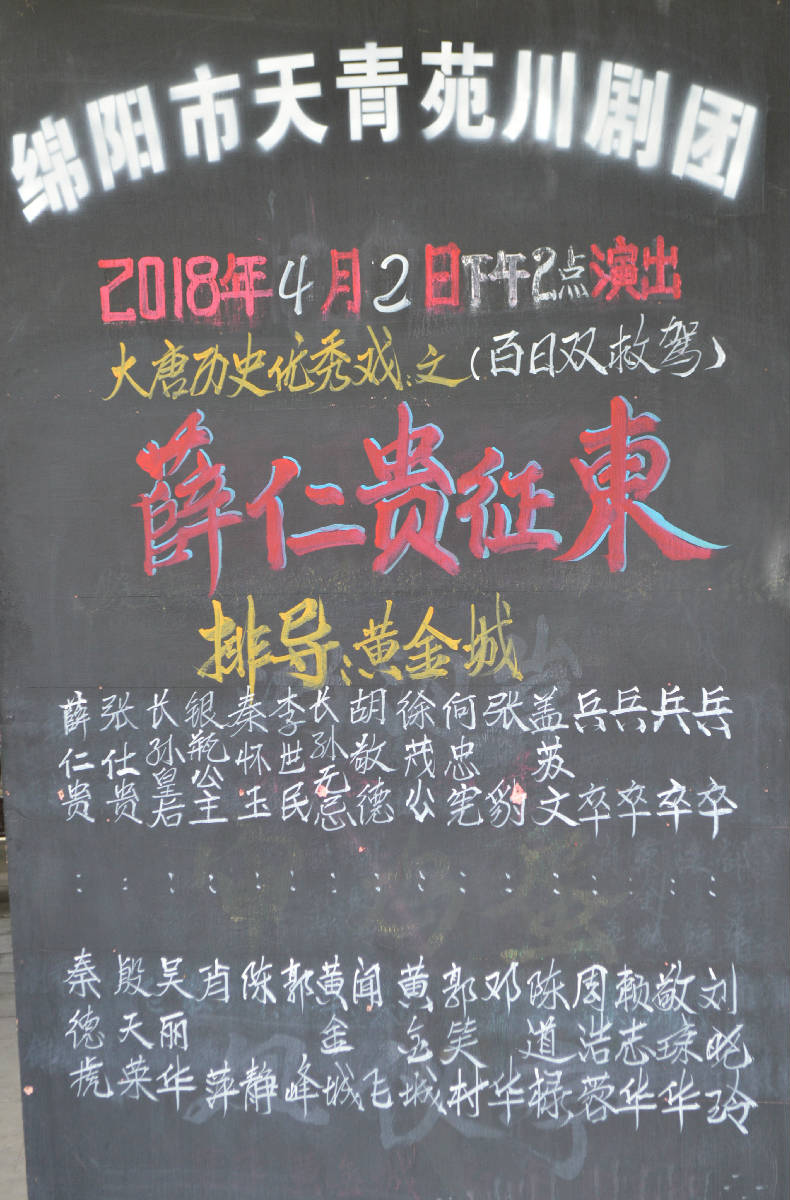 绵阳市天青苑川剧团
2018年4月2日下午2点演出
大唐历史优秀戏:文(百日双救驾)
薛仁贵征東
排导:黄金城
薛仁贵:秦德虎
张仕贵:殷天荣
长孙皇后:吴丽华
银瓶公主:肖萍
秦怀玉:陈静
李世民:郭峰
长孙无忌:黄金城
胡敬德:闻飞
徐茂公:黄金城
何忠宪:郭笑村
张豹:邓华
盖苏文:陈道禄
兵卒:周浩蓉
兵卒:赖志华
兵卒:敬琼华
兵卒:刘晓玲